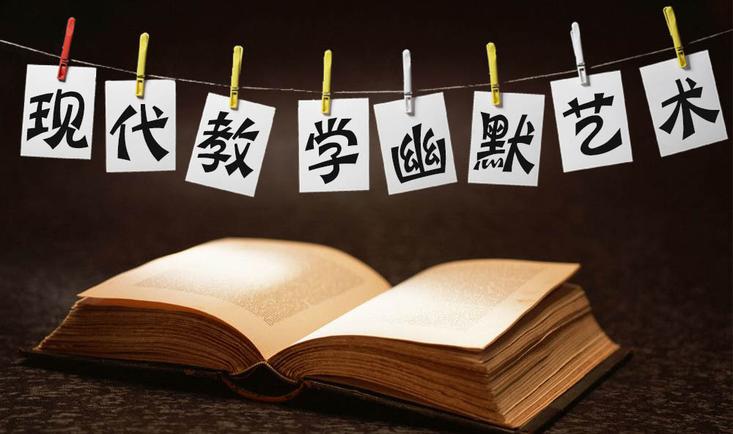 现代教学幽默艺术